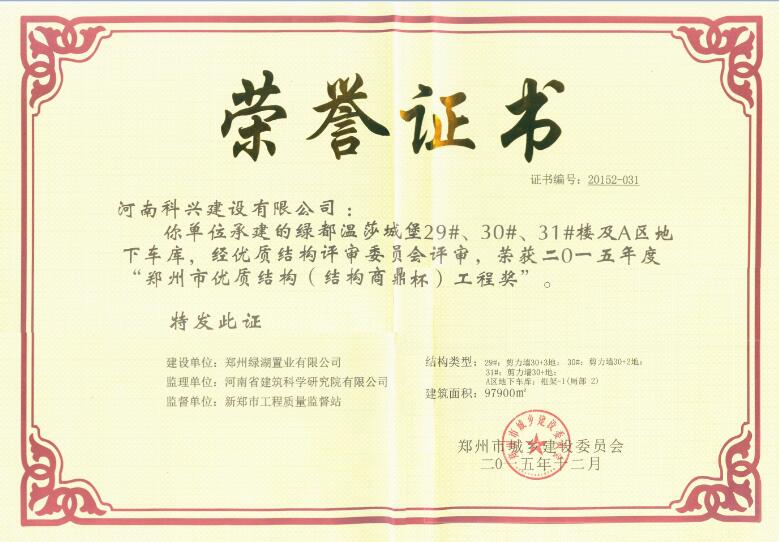 荣誉证书
证书编号：20152-031
河南科兴建设有限公司：
你单位承建的绿都温莎城堡29#、30#、31#楼及A区地
下车库，经优质结构评审委员会评审，荣获二〇一五年度
“郑州市优质结构（结构商鼎杯）工程奖”。
特发此证
建设单位：郑州绿湖置业有限公司
监理单位：河南省建筑科学研究院有限公司
监督单位：新郑市工程质量监督站
结构类型：29#：剪力墙30+3地； 30#：剪力墙30+2地；
31#：剪力墙30+地；
A区地下车库：框架-1(局部 2)
建筑面积：97900㎡
郑州市城乡建设委员会
二〇一五年十二月